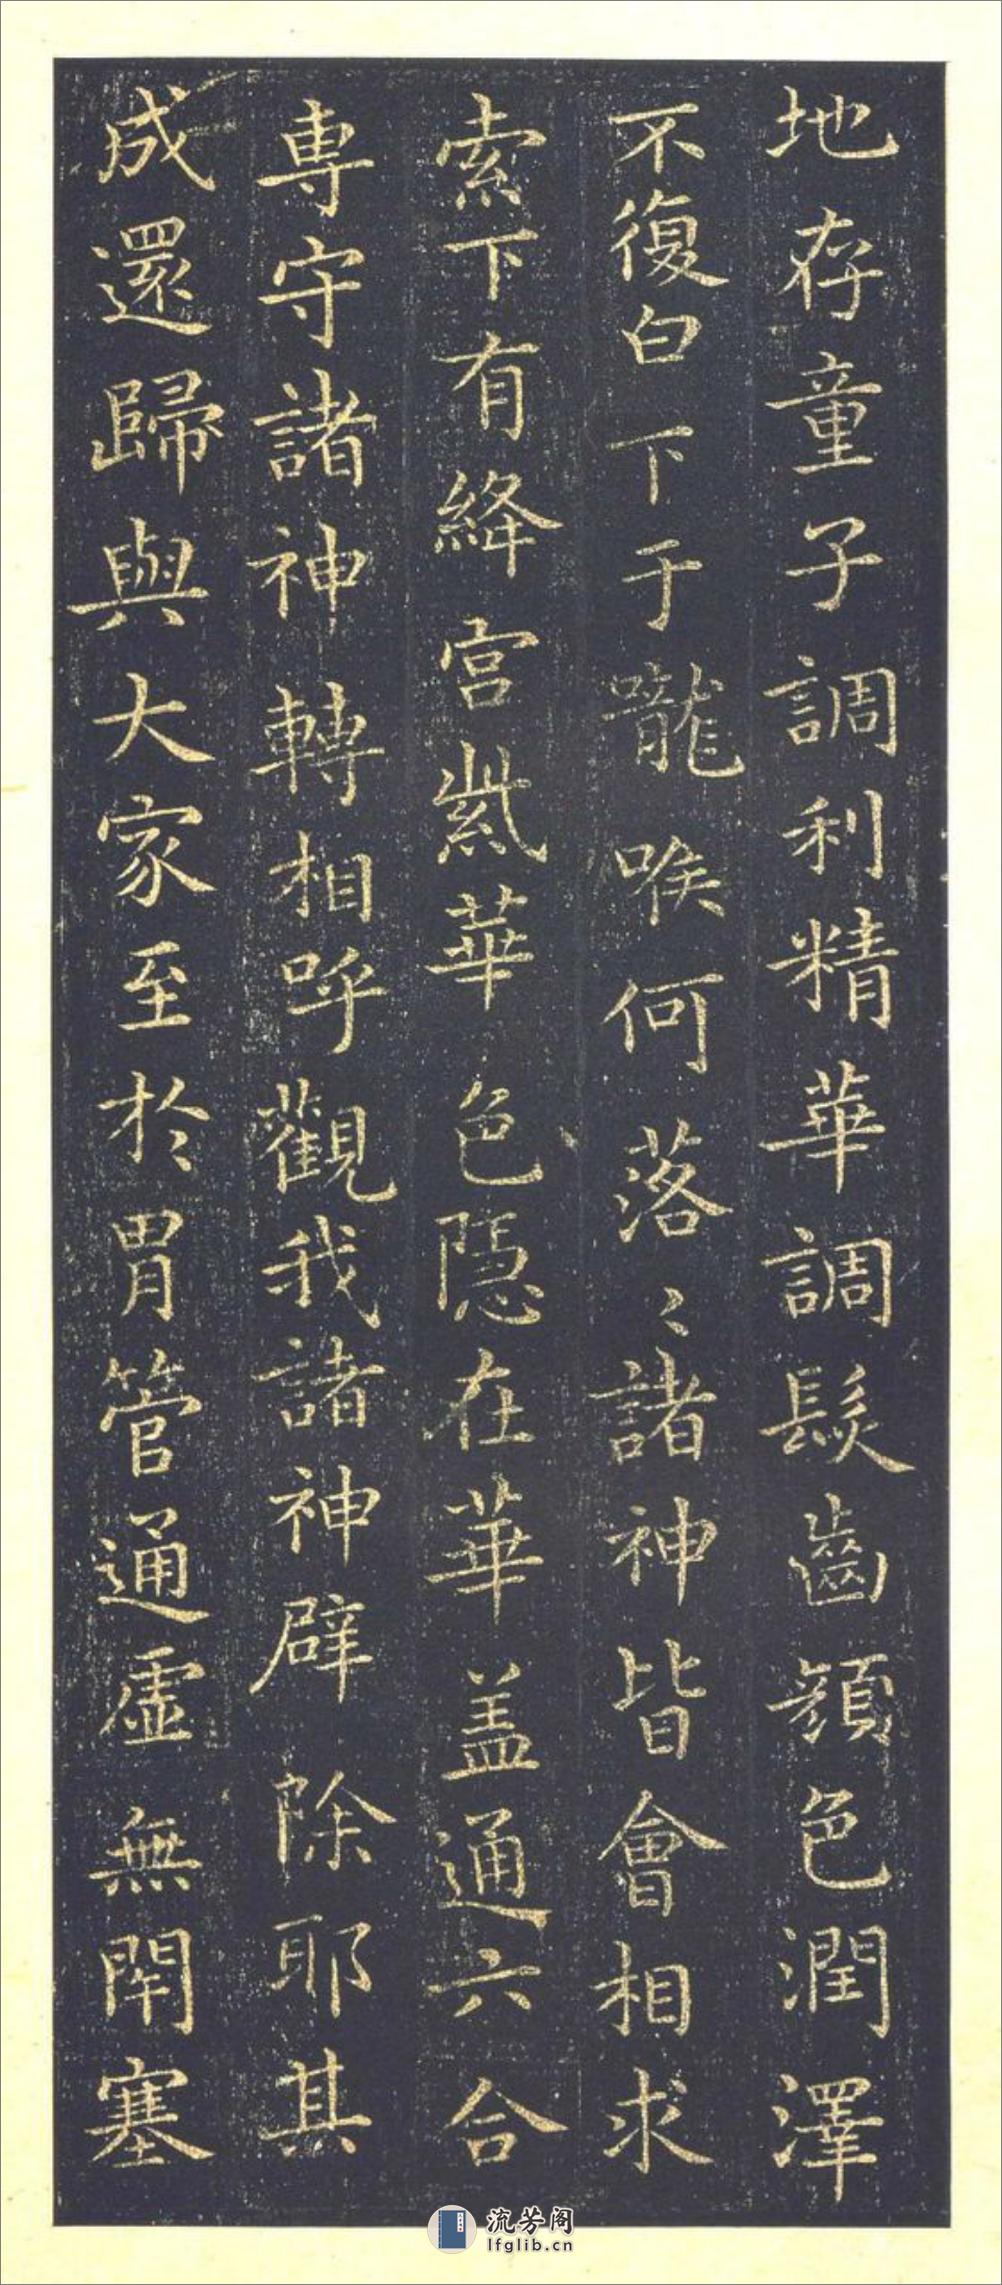 地存童子調利精華調髮齒顏色潤澤
不復白下于嚨喉何落〻諸神皆會相求
索下有絳宮紫華色隱在華盖通六合
專守諸神轉相呼觀我諸神辟除耶其
成還歸與大家至於胃管通虛無閇塞
流芳阁
lfglib.cn